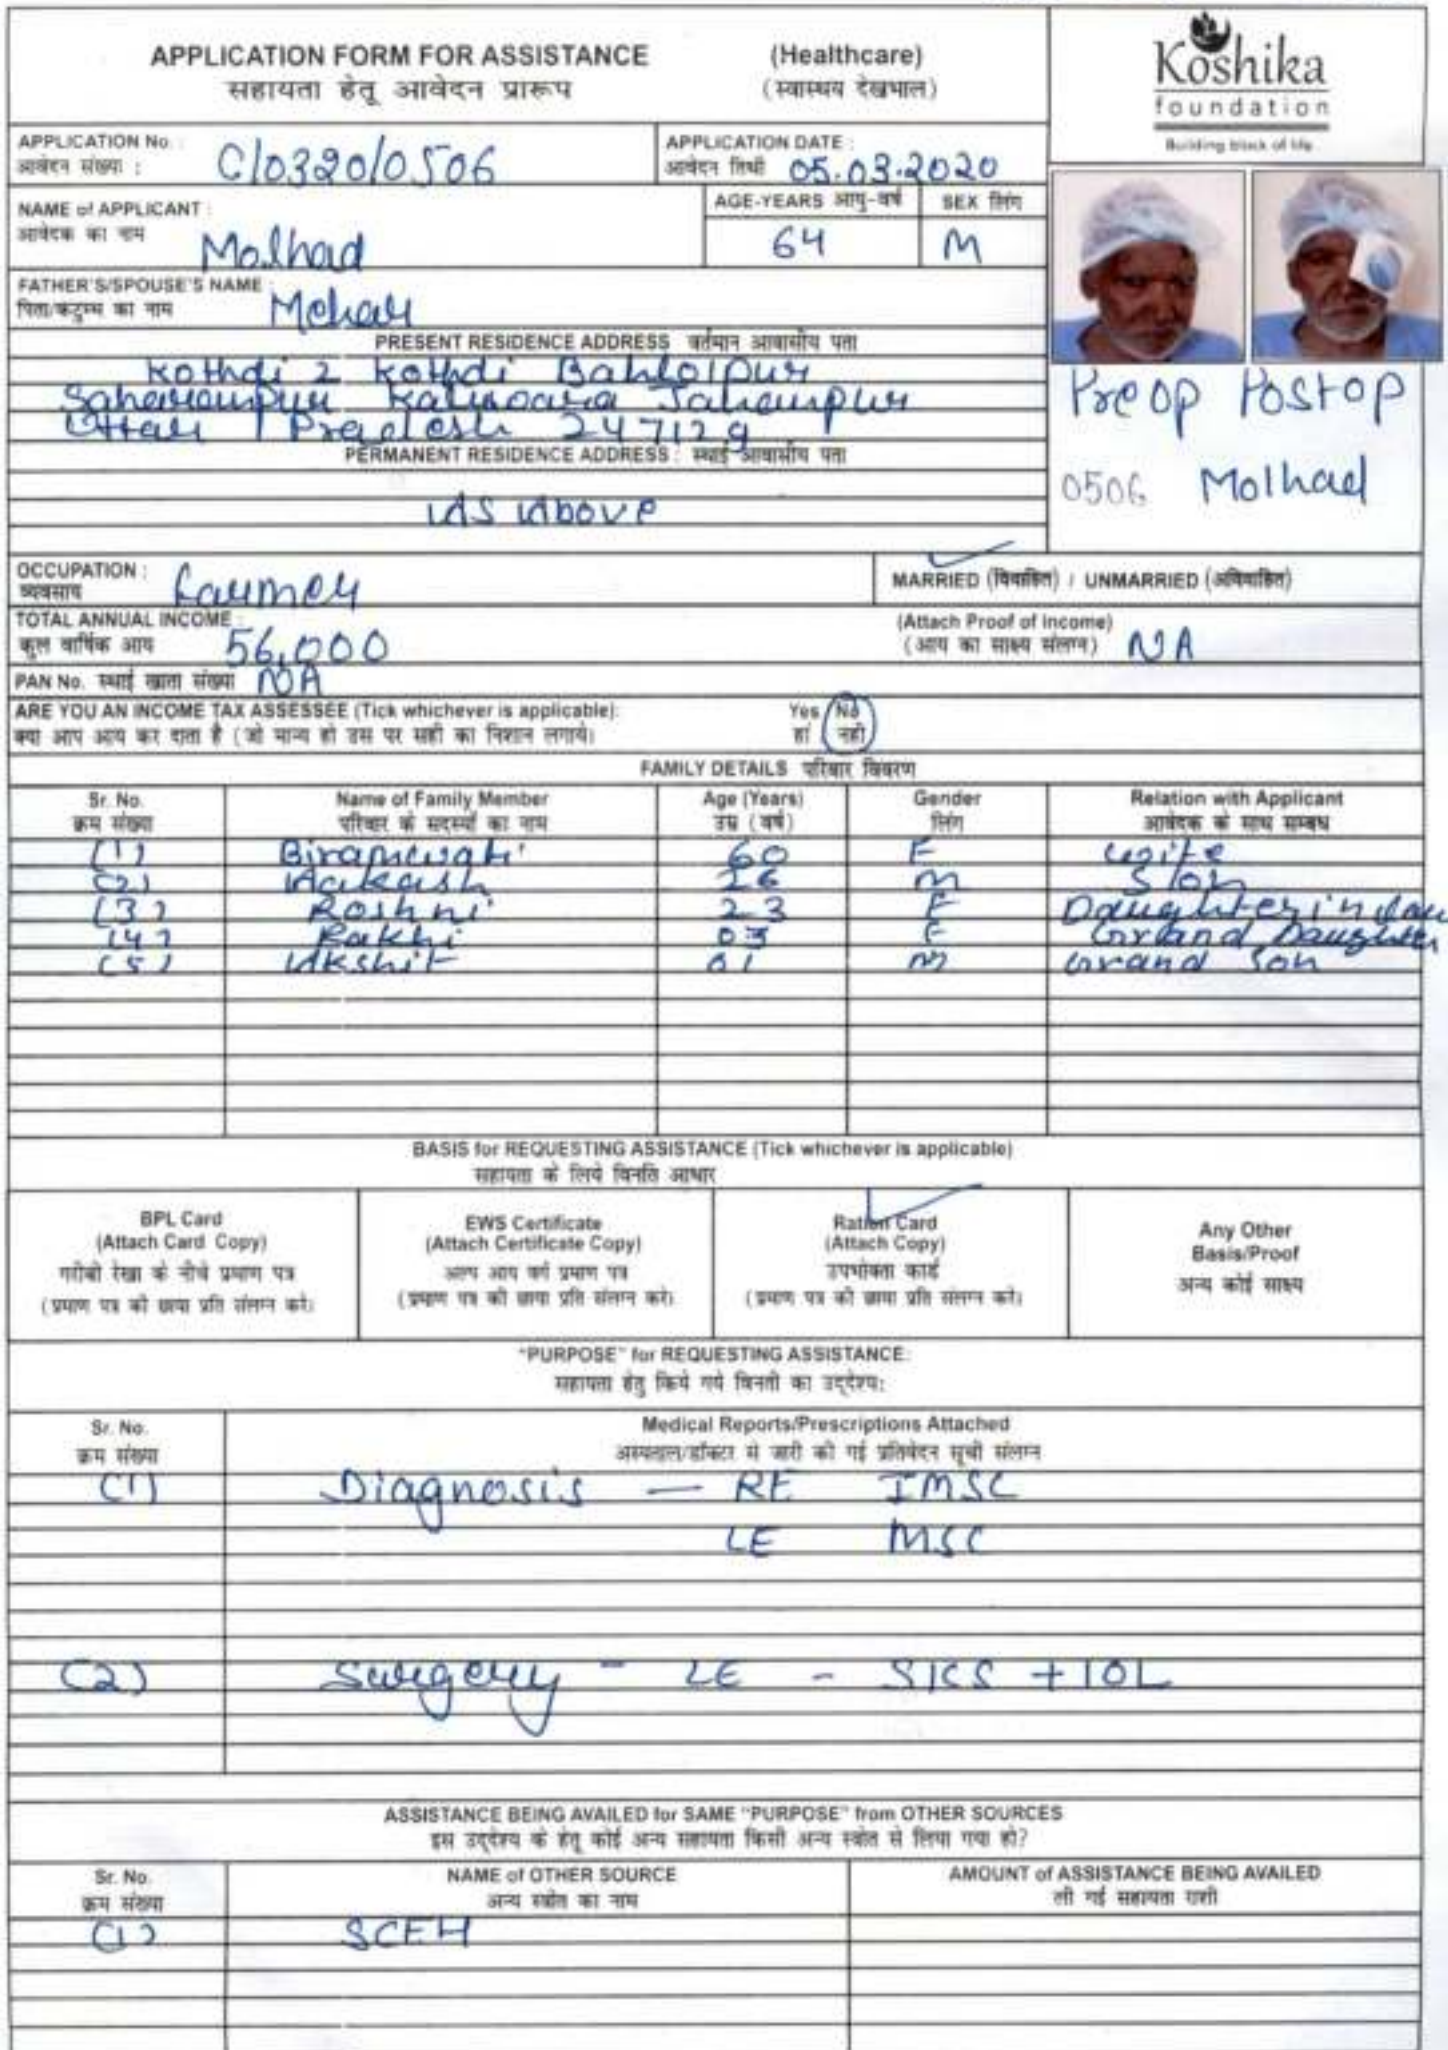 APPLICATION FORM FOR ASSISTANCE (Healthcare)
सहायता हेतू आवेदन प्रारूप (स्वास्थय देखभाल)
Koshika
foundation
Building block of life
APPLICATION No. : C/0320/0506
आवेदन संख्या :
APPLICATION DATE :
आवेदन तिथी 05.03.2020
NAME of APPLICANT :
आवेदक का नाम Molhad
AGE-YEARS आयु-वर्ष 64
SEX लिंग M
FATHER'S/SPOUSE'S NAME :
पिता/कटुम्भ का नाम Mehar
PRESENT RESIDENCE ADDRESS वर्तमान आवासीय पता
Kothdi 2 Kothdi Bahlolpur
Saharanpur
Uttar Pradesh 247129
PERMANENT RESIDENCE ADDRESS : स्थाई आवासीय पता
As Above
Preop Postop
0506 Molhad
OCCUPATION :
व्यवसाय Farmer
MARRIED (विवाहित) / UNMARRIED (अविवाहित)
TOTAL ANNUAL INCOME :
कुल वार्षिक आय 56,000
(Attach Proof of Income)
(आय का साक्ष्य संलग्न) NA
PAN No. स्थाई खाता संख्या NA
ARE YOU AN INCOME TAX ASSESSEE (Tick whichever is applicable): Yes / No
क्या आप आय कर दाता है (जो मान्य हो उस पर सही का निशान लगाये) हां नही
FAMILY DETAILS परिवार विवरण
Sr. No. Name of Family Member Age (Years) Gender Relation with Applicant
क्रम संख्या परिवार के सदस्यों का नाम उम्र (वर्ष) लिंग आवेदक के साथ सम्बध
(1) Biramwati 60 F wife
(2) Aakash 26 M Son
(3) Roshni 23 F Daughter in law
(4) Rakhi 03 F Grand Daughter
(5) Akshit 01 M Grand Son
BASIS for REQUESTING ASSISTANCE (Tick whichever is applicable)
सहायता के लिये विनति आधार
BPL Card
(Attach Card Copy)
गरीबी रेखा के नीचे प्रमाण पत्र
(प्रमाण पत्र की छाया प्रति संलग्न करे)
EWS Certificate
(Attach Certificate Copy)
अल्प आय वर्ग प्रमाण पत्र
(प्रमाण पत्र की छाया प्रति संलग्न करे)
Ration Card
(Attach Copy)
उपभोक्ता कार्ड
(प्रमाण पत्र की छाया प्रति संलग्न करे)
Any Other
Basis/Proof
अन्य कोई साक्ष्य
"PURPOSE" for REQUESTING ASSISTANCE:
सहायता हेतु किये गये विनती का उद्देश्य:
Sr. No. Medical Reports/Prescriptions Attached
क्रम संख्या अस्पताल/डॉक्टर से जारी की गई प्रतिवेदन सूची संलग्न
(1) Diagnosis — RE IMSC
LE MSC
(2) Surgery - LE - SICS + IOL
ASSISTANCE BEING AVAILED for SAME "PURPOSE" from OTHER SOURCES
इस उद्देश्य के हेतू कोई अन्य सहायता किसी अन्य स्त्रोत से लिया गया हो?
Sr. No. NAME of OTHER SOURCE AMOUNT of ASSISTANCE BEING AVAILED
क्रम संख्या अन्य स्त्रोत का नाम ली गई सहायता राशी
(1) SCEH